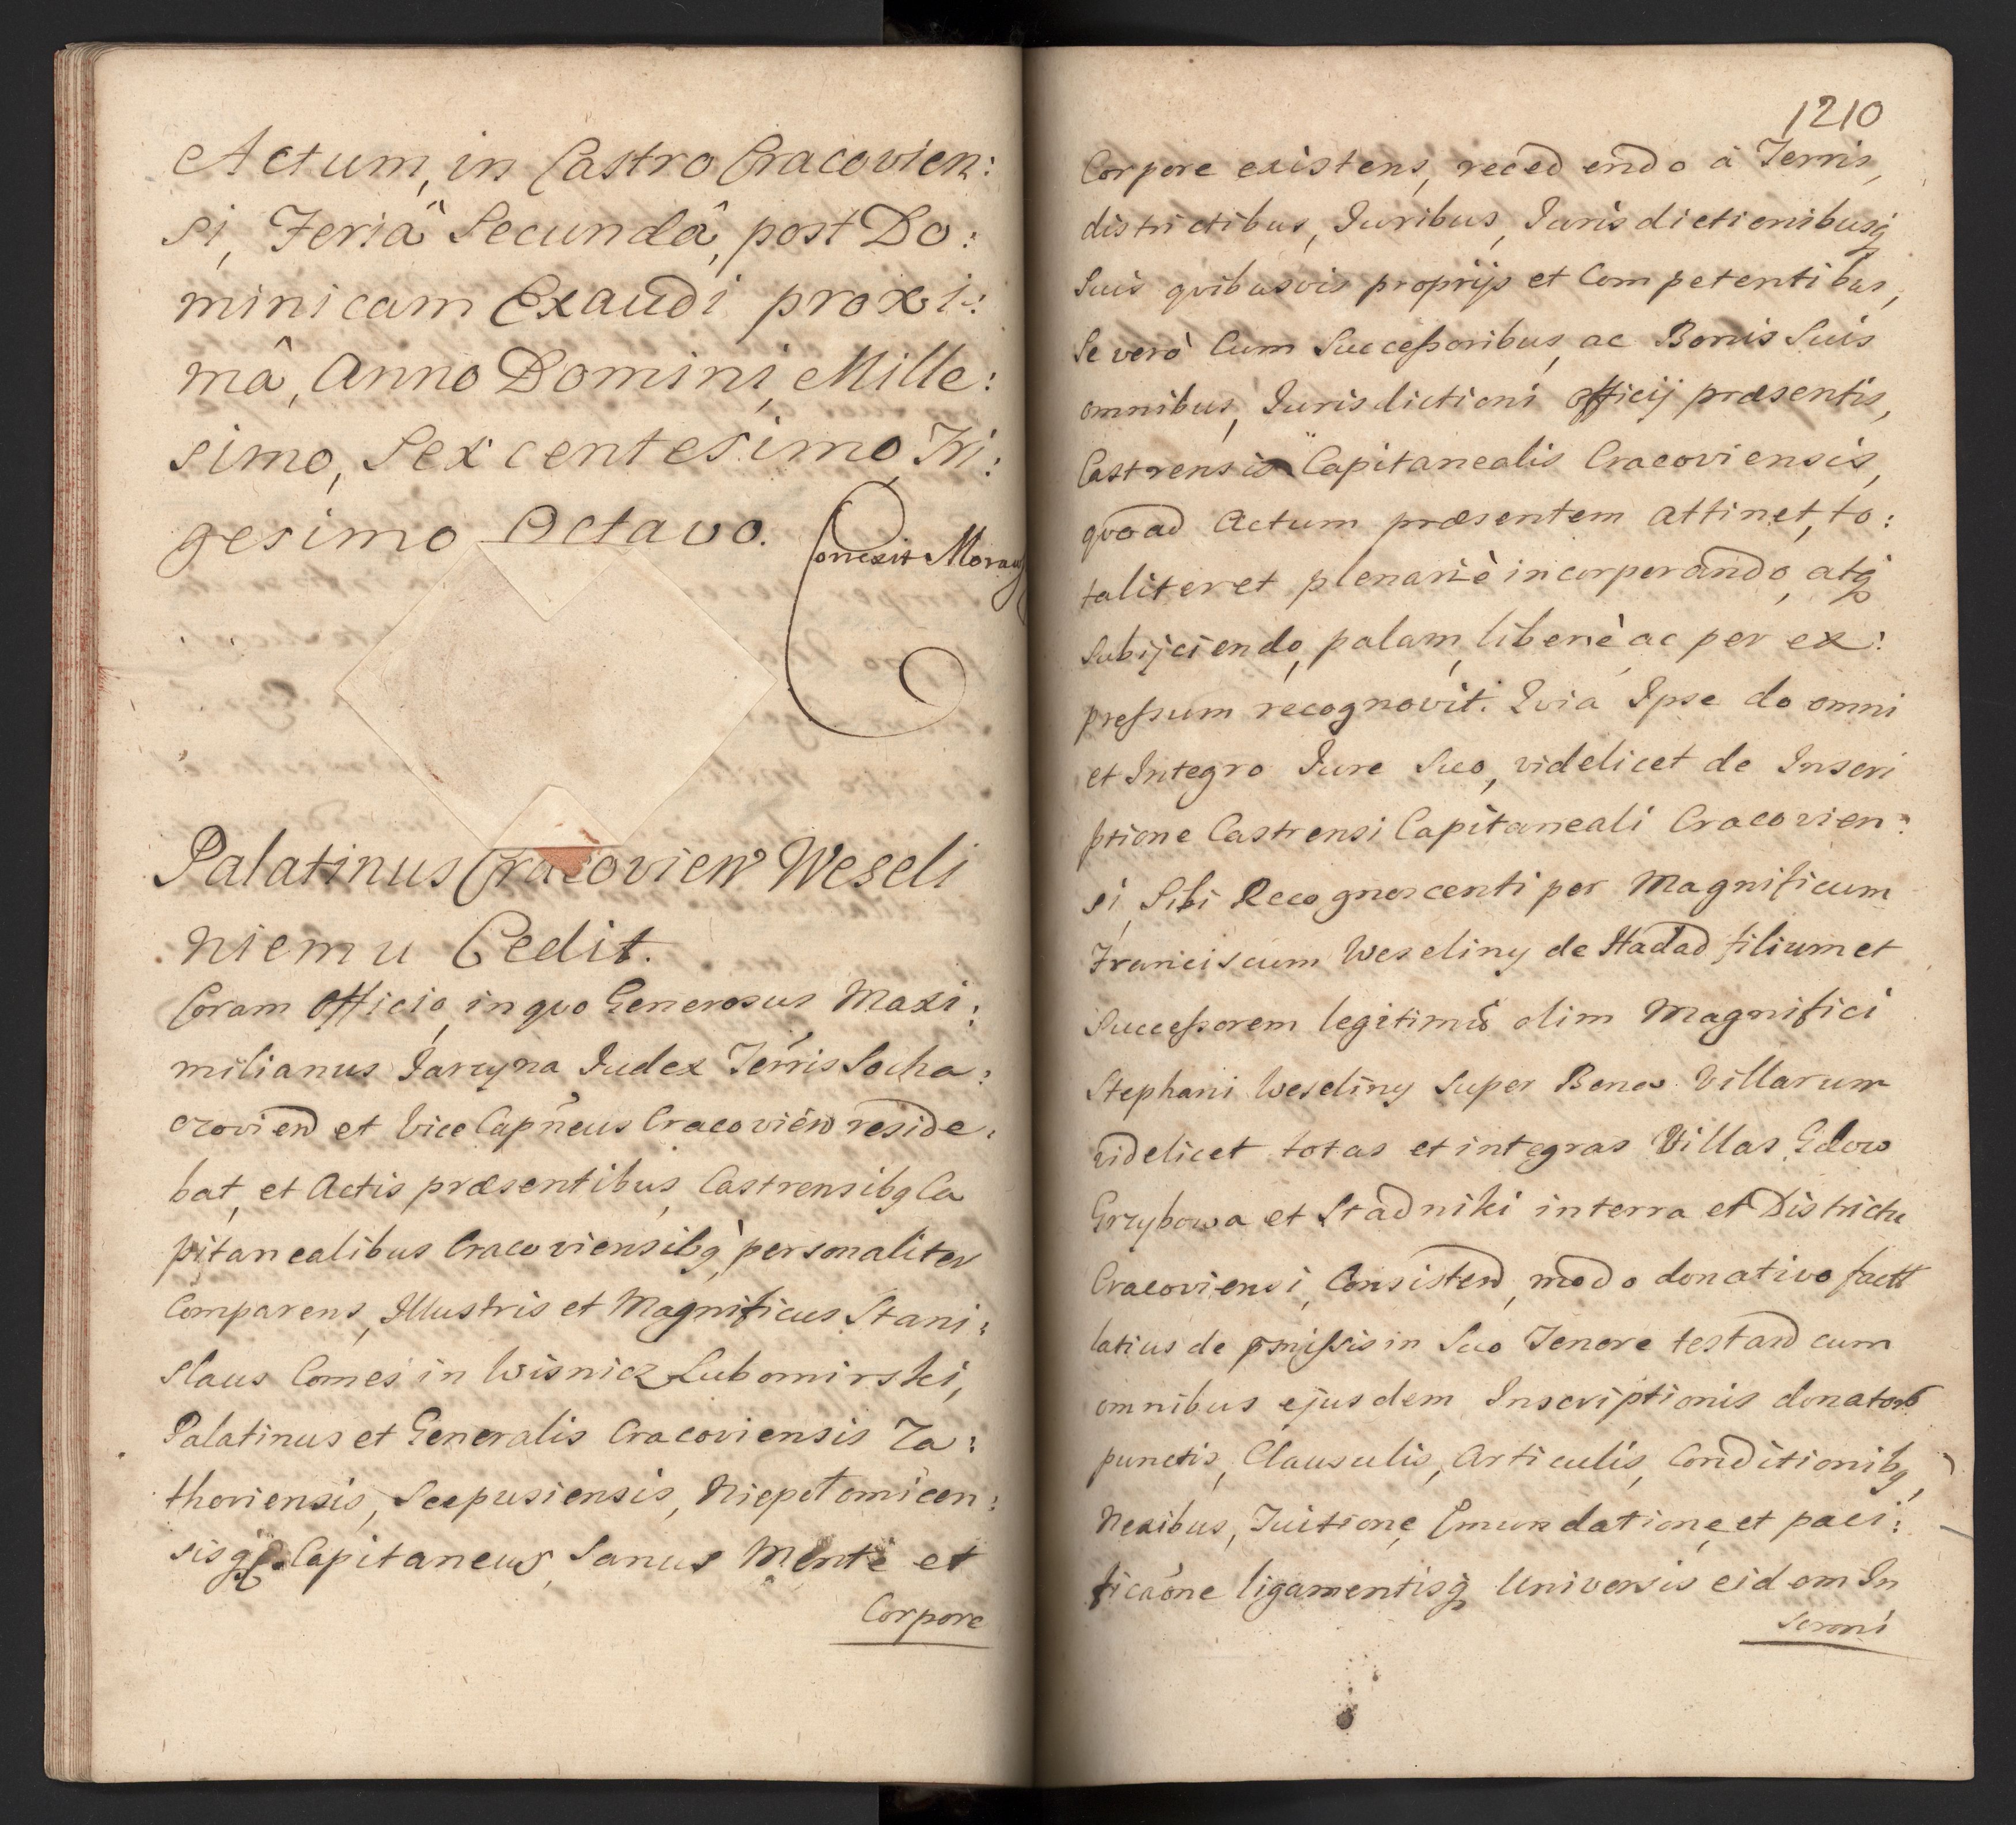 Actum, in Castro Cracovien:
si, Feriâ Secundâ, post Do:
minicam Exaudi proxi:
mâ, Anno Domini, Mille:
simo, Sexcentesimo, Tri:
gesimo Octavo.
Correxit
Palatinus Cracovien Weseli
niemu Cedit.
Coram Officio, in quo Generosus Maxi:
milianus Jarzyna Judex Terris Socha:
czovien et ViceCapneus Cracovien reside:
bat, et Actis præsentibus, Castrensibq Ca
pitanealibus Cracoviensibq, personaliter
Comparens, Illustris et Magnificus Stani:
slaus Comes in Wisnicz Lubomirski,
Palatinus et Generalis Cracoviensis Za:
thoriensis, Scepusiensis, Niepotomicen:
sisq Capitaneus, Sanus Mente et
Corpore
1210
Corpore existens, recedendo à Terris,
districtibus, Juribus, Jurisdictionibusq
Suis qvibusvis proprijs et Competentibus,
Se verò Cum Successoribus, ac Bonis Suis
omnibus, Jurisdictioni officij præsentis,
Castrensis Capitanealis Cracoviensis,
qvoad Actum præsentem attinet, to:
taliter et plenariè incorporando, atq
Subijciendo, palam, liberè ac per ex:
pressum recognovit. Qvia Ipse de omni
et Integro Jure Suo, videlicet de Inscri
ptione Castrensi Capitaneali Cracovien:
si, Sibi Recognoscenti per Magnificum
Franciscum Weseliny de Hadad filium et
Successorem legitimũ olim Magnifici
Stephani Weseliny Super Bona Villarum
videlicet totas et integras Villas Gdow
Grzybowa et Stadniki in terra et Districtu
Cracoviensi, Consisten, modo donativo fact
latius de pmissis in Suo Tenore testan cum
omnibus ejusdem Inscriptionis donator
punctis, Clausulis, Articulis, Conditionibq,
Nexibus, Tuitione, Emundatione, et paci:
ficaõne ligamentisq Universis eidem In